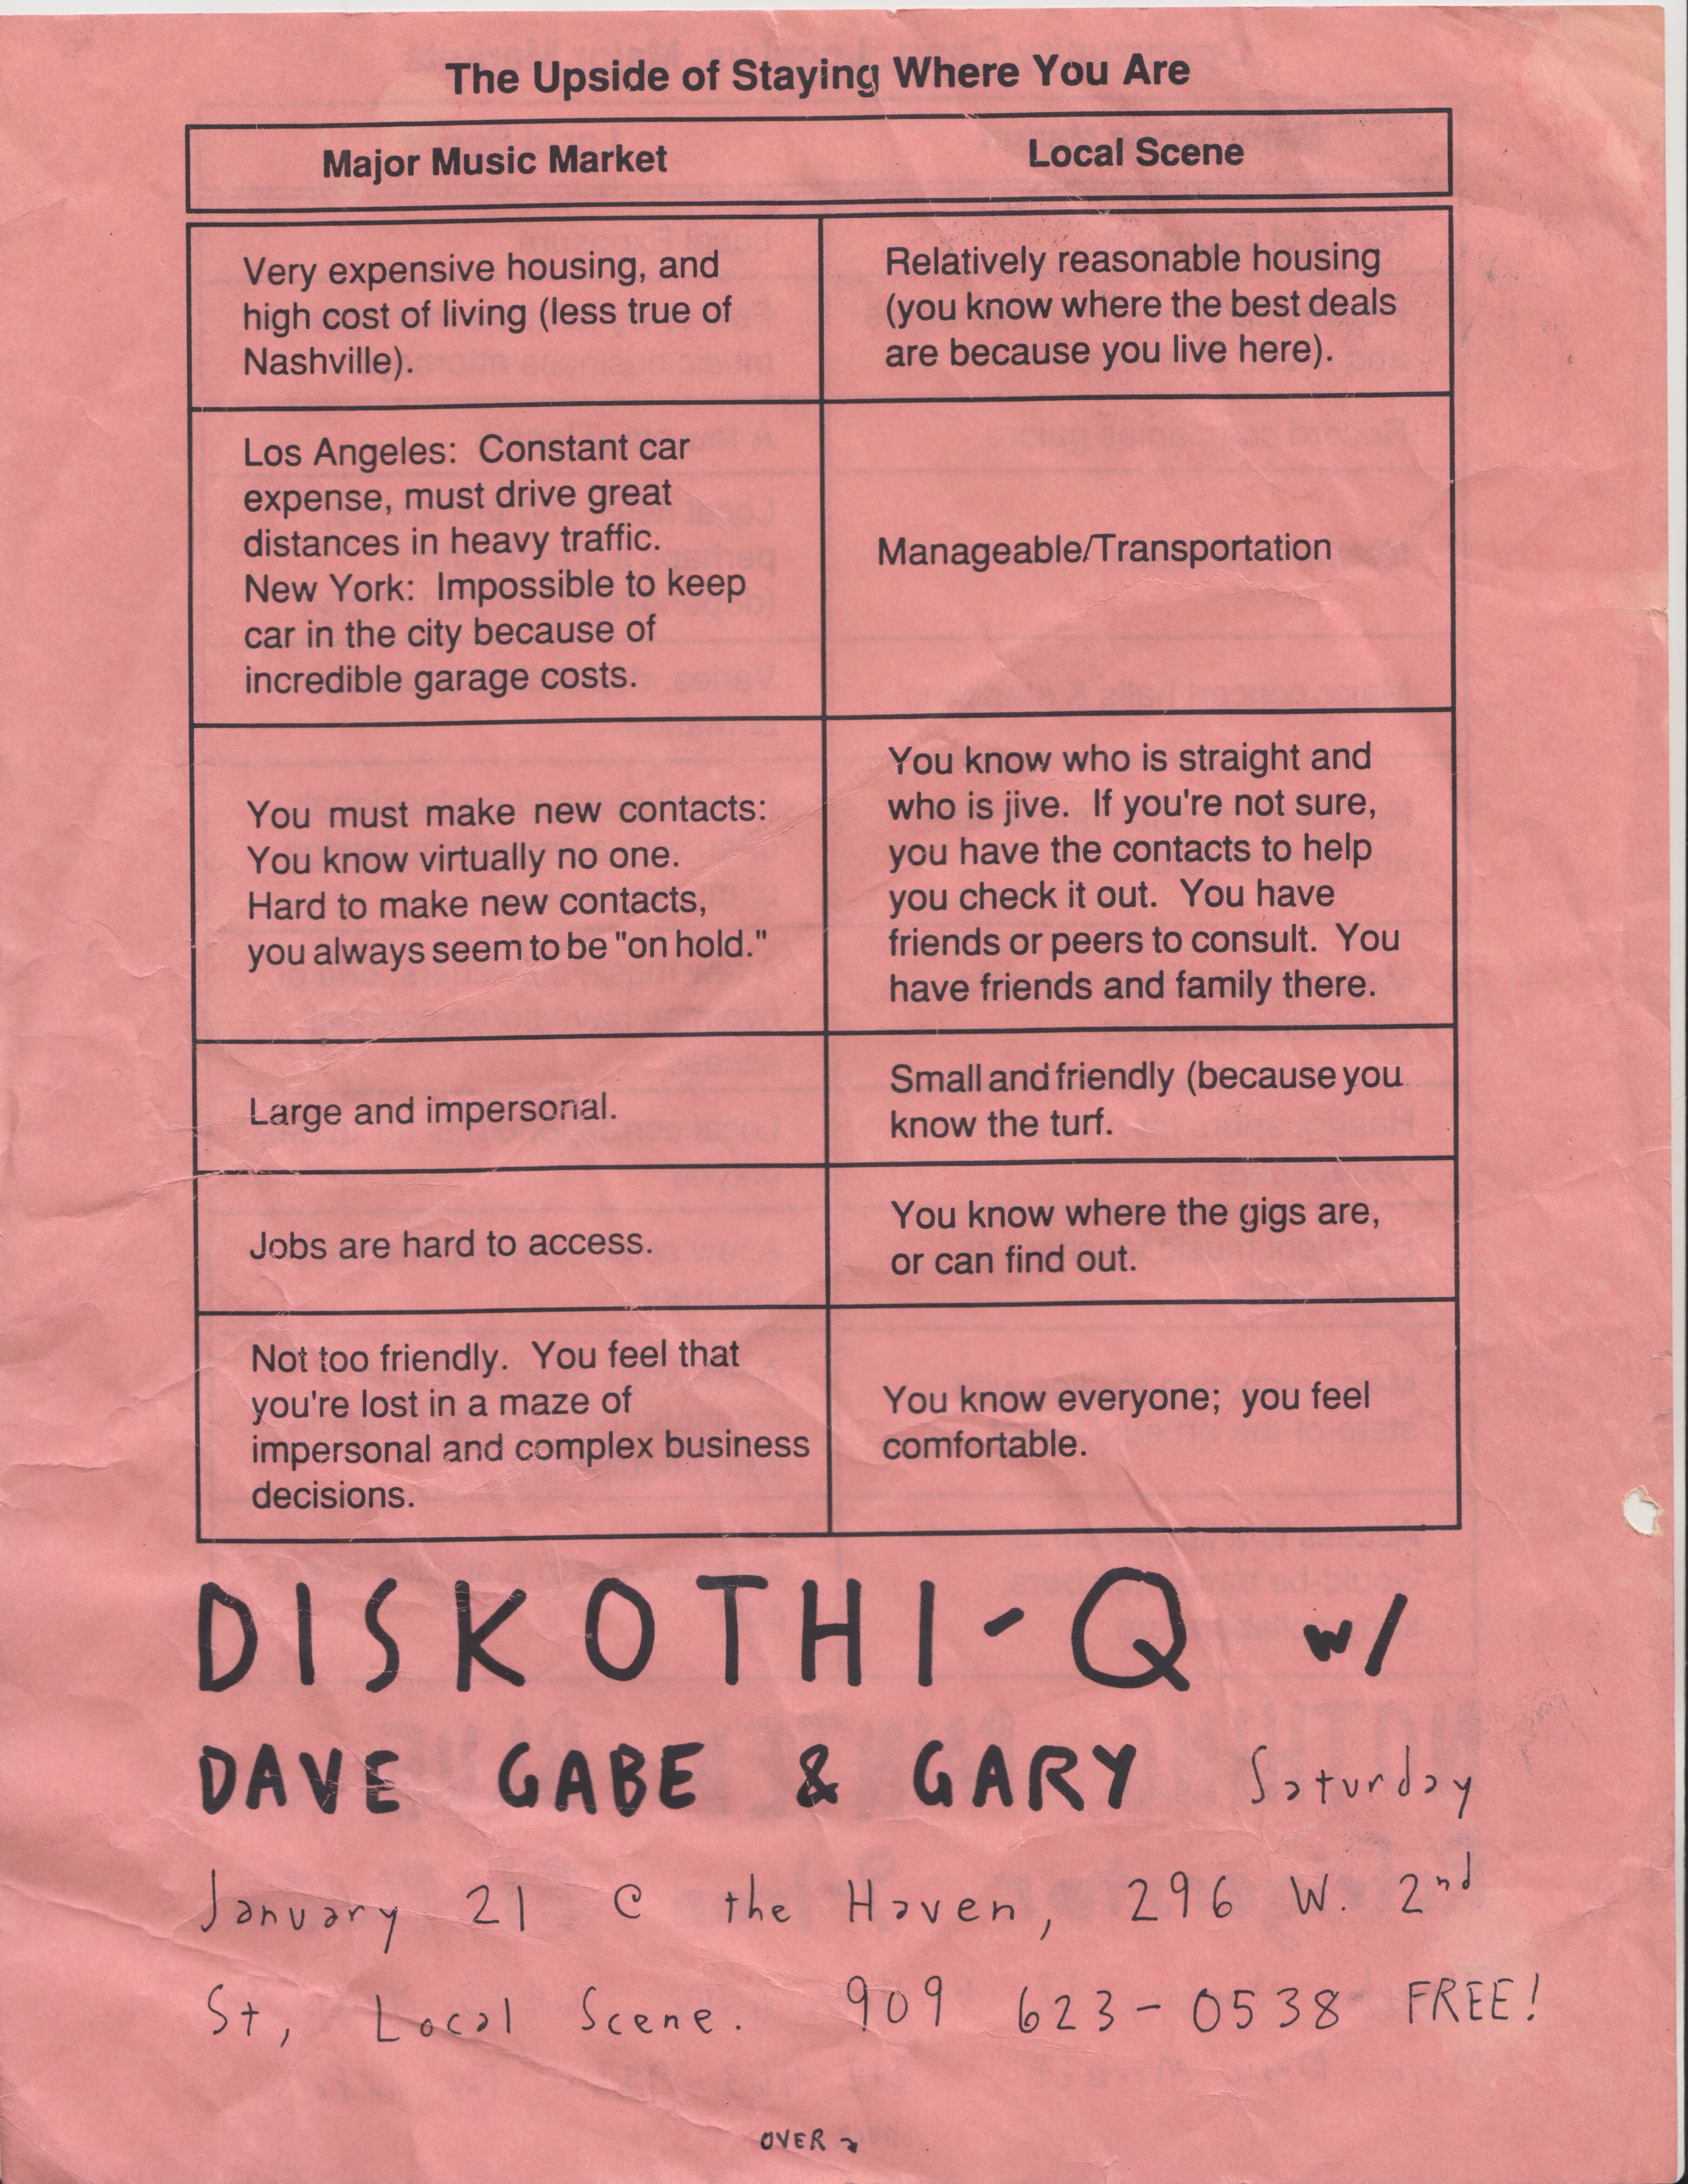 The Upside of Staying Where You Are
Major Music Market
Local Scene
Very expensive housing, and
high cost of living (less true of
Nashville).
Relatively reasonable housing
(you know where the best deals
are because you live here).
Los Angeles: Constant car
expense, must drive great
distances in heavy traffic.
New York: Impossible to keep
car in the city because of
incredible garage costs.
Manageable/Transportation
You must make new contacts:
You know virtually no one.
Hard to make new contacts,
you always seem to be "on hold."
You know who is straight and
who is jive. If you're not sure,
you have the contacts to help
you check it out. You have
friends or peers to consult. You
have friends and family there.
Large and impersonal.
Small and friendly (because you
know the turf.
Jobs are hard to access.
You know where the gigs are,
or can find out.
Not too friendly. You feel that
you're lost in a maze of
impersonal and complex business
decisions.
You know everyone; you feel
comfortable.
DISKOTHI-Q w/
DAVE GABE & GARY Saturday
January 21 @ the Haven, 296 W. 2nd
St, Local Scene. 909 623-0538 FREE!
OVER